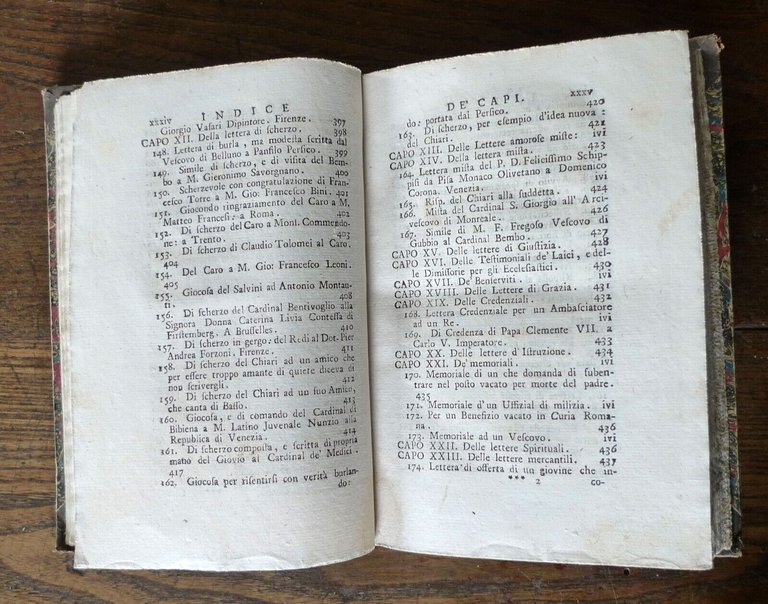 xxxiv INDICE
Giorgio Vasari Dipintore. Firenze. 397
CAPO XII. Della lettera di scherzo. 398
148. Lettera di burla, ma modesta scritta dal
Vescovo di Belluno a Panfilo Persico. 399
149. Simile di scherzo, e di visita del Bem-
bo a M. Gieronimo Savorgnano. 400
150. Scherzevole con congratulazione di Fran-
cesco Torre a M. Gio: Francesco Bini. 401
151. Giocondo ringraziamento del Caro a M.
Matteo Francesi: a Roma. 402
152. Di scherzo del Caro a Mons. Commendo-
ne: a Trento. 403
153. Di scherzo di Claudio Tolomei al Caro.
404
154. Del Caro a M. Gio: Francesco Leoni.
405
155. Giocosa del Salvini ad Antonio Montau-
ti. 408
156. Di scherzo del Cardinal Bentivoglio alla
Signora Donna Caterina Livia Contessa di
Firstemberg. A Brusselles. 410
157. Di scherzo in gergo del Redi al Dot. Pier
Andrea Forzoni. Firenze. 411
158. Di scherzo del Chiari ad un amico che
per essere troppo amante di quiete diceva di
non scrivergli. 412
159. Di scherzo del Chiari ad un suo Amico,
che canta di Basso. 413
160. Giocosa, e di comando del Cardinal di
Bibiena a M. Latino Juvenale Nunzio alla
Republica di Venezia. 414
161. Di scherzo composta, e scritta di propria
mano del Giovio al Cardinal de' Medici.
417
162. Giocosa per risentirsi con verità burlan-
do:
DE' CAPI. xxxv
do: portata dal Persico. 420
163. Di scherzo, per esempio d'idea nuova:
del Chiari. 421
CAPO XIII. Delle Lettere amorose miste: ivi
CAPO XIV. Della lettera mista. 423
164. Lettera mista del P. D. Felicissimo Schip-
pisi da Pisa Monaco Olivetano a Domenico
Corona. Venezia. ivi
165. Risp. del Chiari alla suddetta. 424
166. Mista del Cardinal S. Giorgio all' Arci-
vescovo di Monreale. ivi
167. Simile di M. F. Fregoso Vescovo di
Gubbio al Cardinal Bembo. 427
CAPO XV. Delle lettere di Giustizia. 428
CAPO XVI. Delle Testimoniali de' Laici, e del-
le Dimissorie per gli Ecclesiastici. 430
CAPO XVII. De' Benserviti. ivi
CAPO XVIII. Delle Lettere di Grazia. 431
CAPO XIX. Delle Credenziali. 432
168. Lettera Credenziale per un Ambasciatore
ad un Re. ivi
169. Di Credenza di Papa Clemente VII. a
Carlo V. Imperatore. 433
CAPO XX. Delle lettere d'Istruzione. 434
CAPO XXI. De' memoriali. ivi
170. Memoriale di un che domanda di suben-
trare nel posto vacato per morte del padre.
435
171. Memoriale d'un Uffizial di milizia. ivi
172. Per un Benefizio vacato in Curia Roma-
na. 436
173. Memoriale ad un Vescovo. ivi
CAPO XXII. Delle lettere Spirituali. 436
CAPO XXIII. Delle lettere mercantili. 437
174. Lettera di offerta di un giovine che in-
*** 2 co-